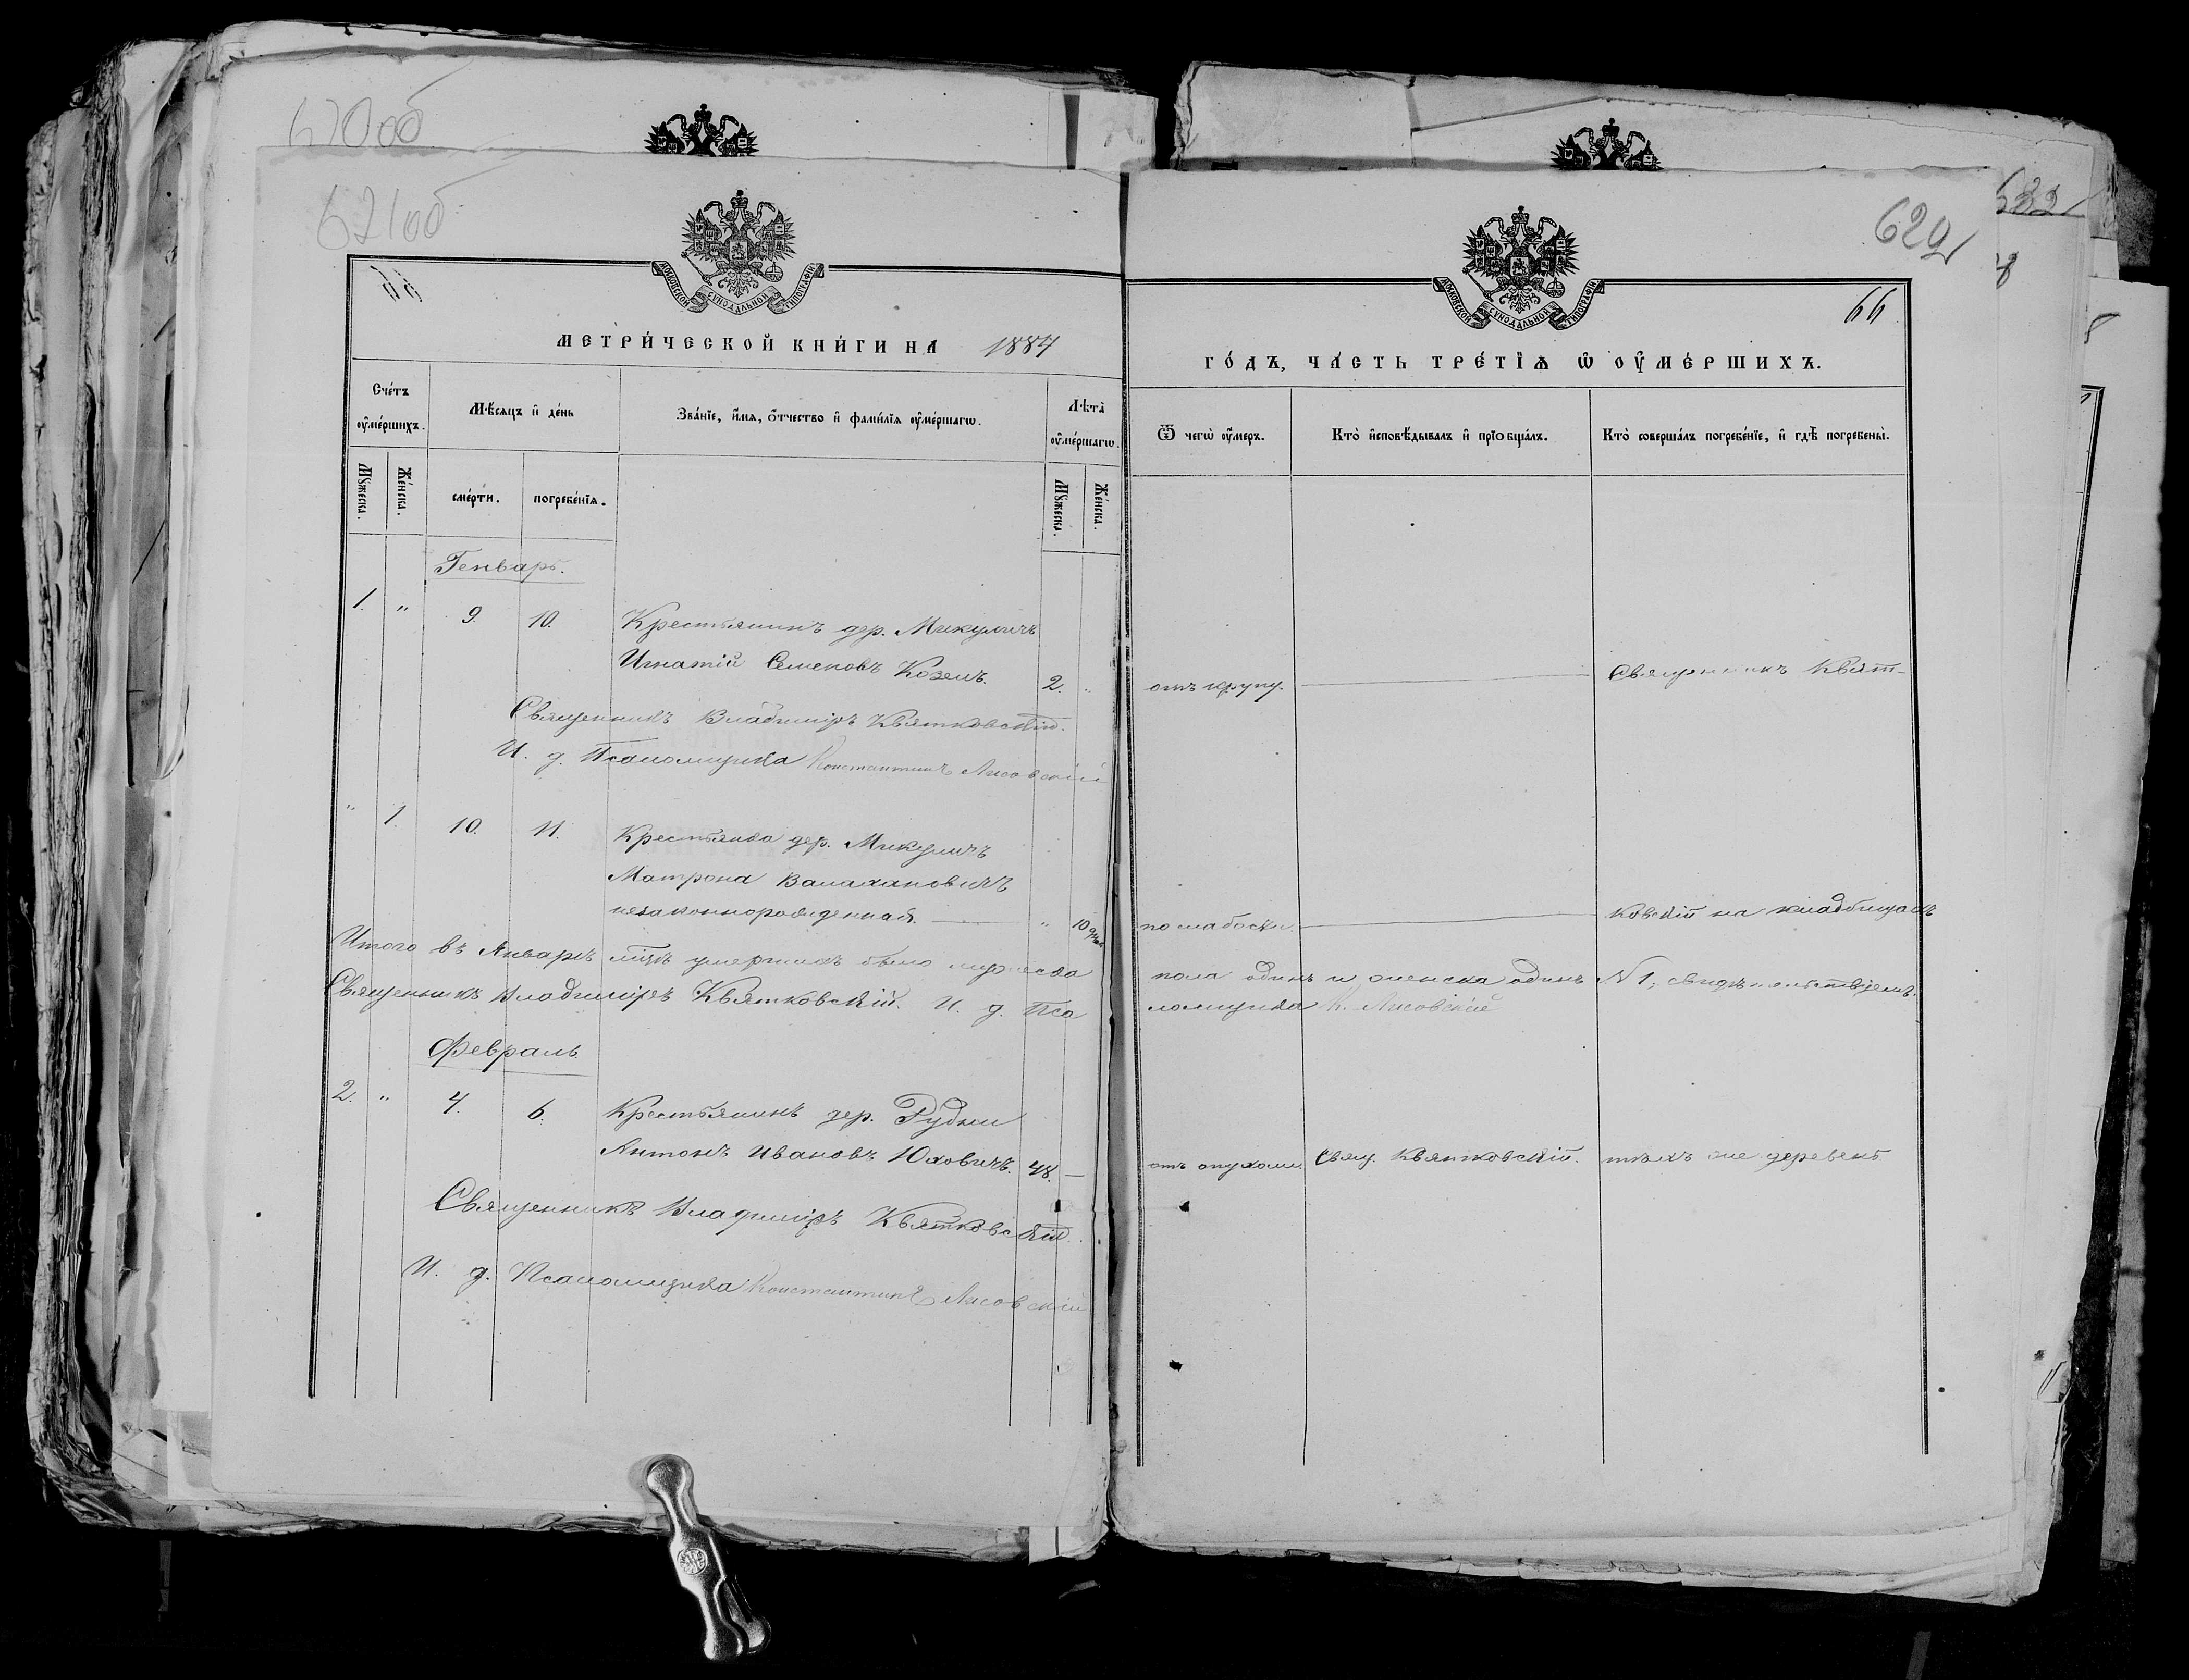 621об
МОСКОВСКОЙ СѴНОДАЛЬНОЙ ТИПОГРАФІИ
МЕТРИ́ЧЕСКОЙ КНИ́ГИ НА 1887
Сче́тъ оу҆ме́ршихъ.
Мѣ́сяцъ и҆ де́нь
Зва́нїе, и҆́мя, ѻ҆́тчество и҆ фами́лїя оу҆ме́ршагѡ.
Лѣ́та оу҆ме́ршагѡ.
Мꙋ́жеска.
Же́нска.
сме́рти.
погребе́нїя.
Мꙋ́жеска.
Же́нска.
Генварь.
1. " 9. 10. Крестьянинъ дер. Микуличъ
Игнатій Семеновъ Козелъ. 2. "
Священникъ Владиміръ Квятковскій.
И. д. Псаломщика Константинъ Лисовскій
" 1. 10. 11. Крестьянка дер. Микуличъ
Матрона
незаконнорожденная. " 10 дней
Итого въ Январѣ мцѣ умершихъ было мужеска
Священникъ Владиміръ Квятковскій. И. д. Пса
Февраль.
2. " 4. 6. Крестьянинъ дер. Рудни
Антонъ Ивановъ Юховичъ. 48. —
Священникъ Владиміръ Квятковскій.
И. д. Псаломщика Константинъ Лисовскій
629
МОСКОВСКОЙ СѴНОДАЛЬНОЙ ТИПОГРАФІИ
66
ГО́ДЪ, ЧА́СТЬ ТРЕ́ТЇѦ Ѡ҆ ОУ҆МЕ́РШИХЪ.
Ѿ чегѡ̀ оу҆́меръ.
Кто̀ и҆сповѣ́дывалъ и҆ прїѻбща́лъ.
Кто̀ соверша́лъ погребе́нїе, и҆ гдѣ̀ погребены̀.
отъ крупу. Священникъ Квят-
по слабости. ковскій на кладбищахъ
пола одинъ и женска одинъ №1, свидѣтельствуемъ.
ломщика К. Лисовскій
отъ опухоли. Свящ. Квятковскій. тѣхъ же деревень.